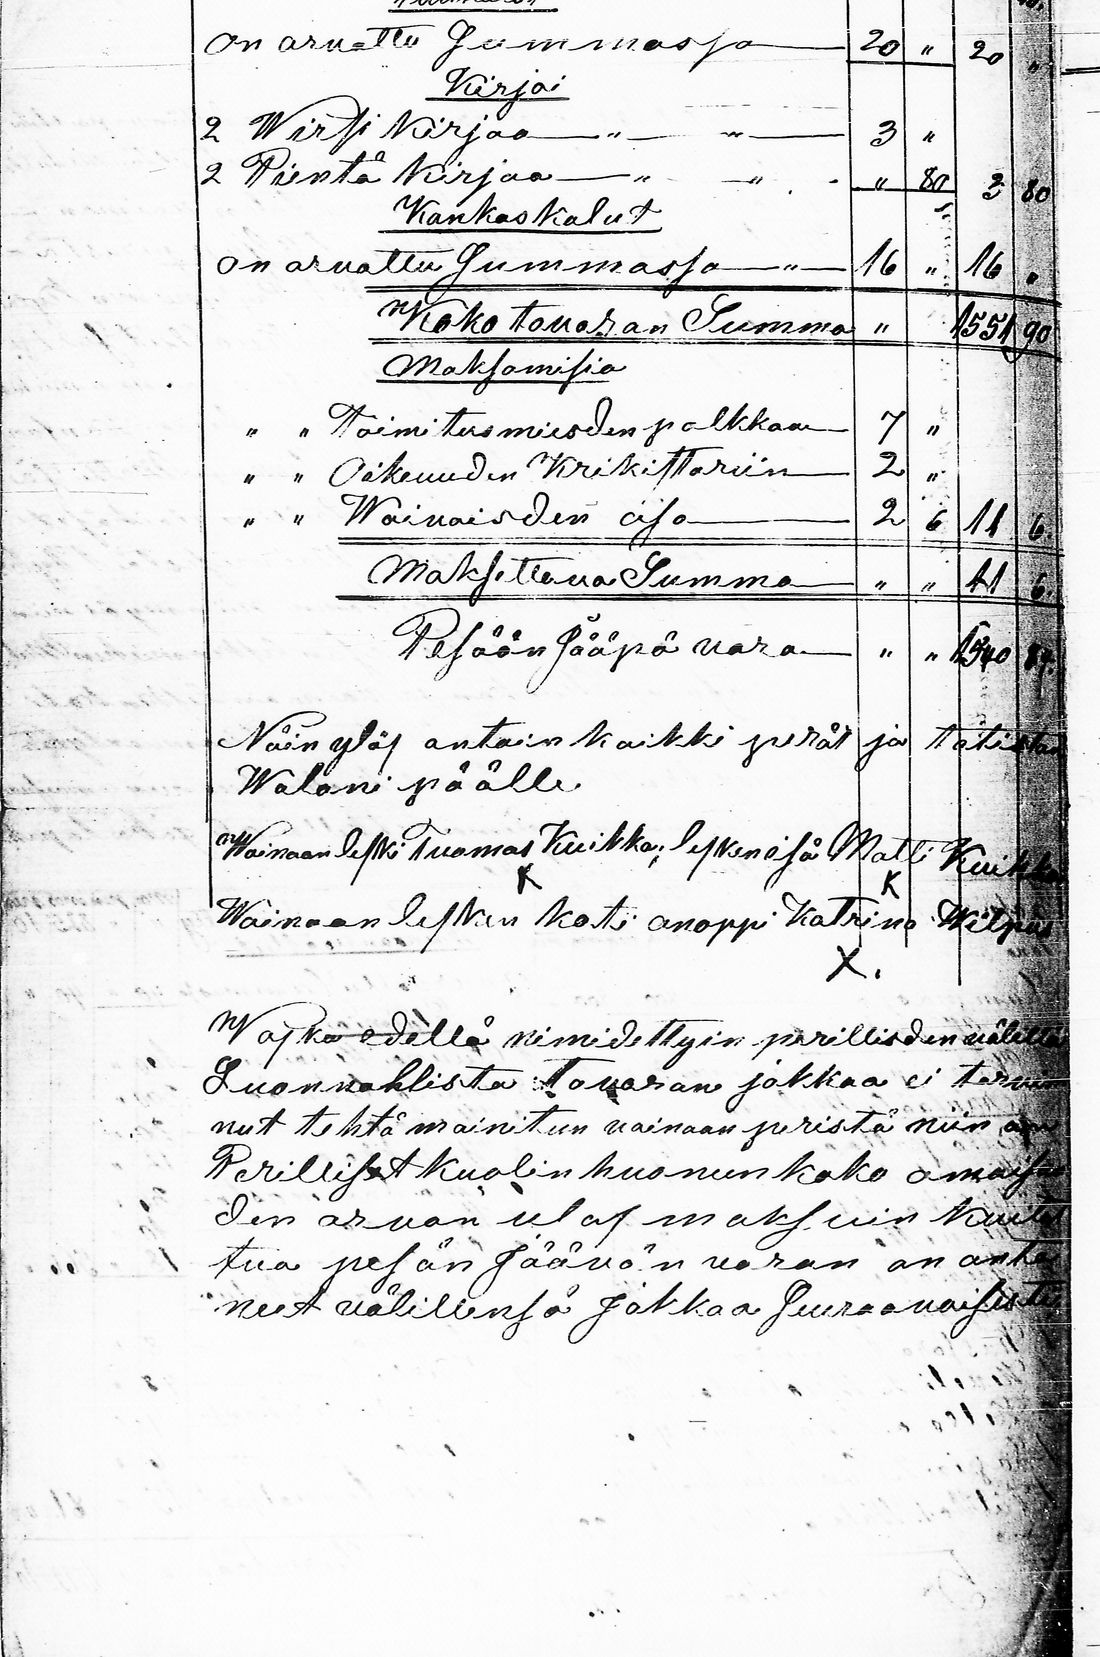 on arvattu Summassa 20 " 20 "
Kirjai
2 Wirsi Kirjaa " " 3 "
2 Pientä Kirjaa " " " 80 3 80
Kankaskalut
on arvattu Summassa " 16 " 16 "
Koko tavaran Summa " 1551 90
Maksamisia
" " Toimitusmiesden palkkaa 7 "
" " Oikeuden Krikistariin 2 "
" " Waivaisden osa 2 6 11 6
Maksettava Summa " " 11 6.
Pesään Jääpä vara " " 1540 84.
Näin ylös antain kaikki perät ja
Walani päälle
Wainaan leski Tuomas Kuikka, lesken isä Matti Kuikka
K K
Wainaan lesken koti anoppi Katrina
X.
edellä nimidettyin perillisden välillä
Luonnahlista Tavaran jakkaa ei
nut tehtä mainitun vainaan peristä niin
Perilliset kuolinhuoneen koko
den arvon ulos maksuin
tua pesän Jäävän varan on
neet välillensä Jakkaa